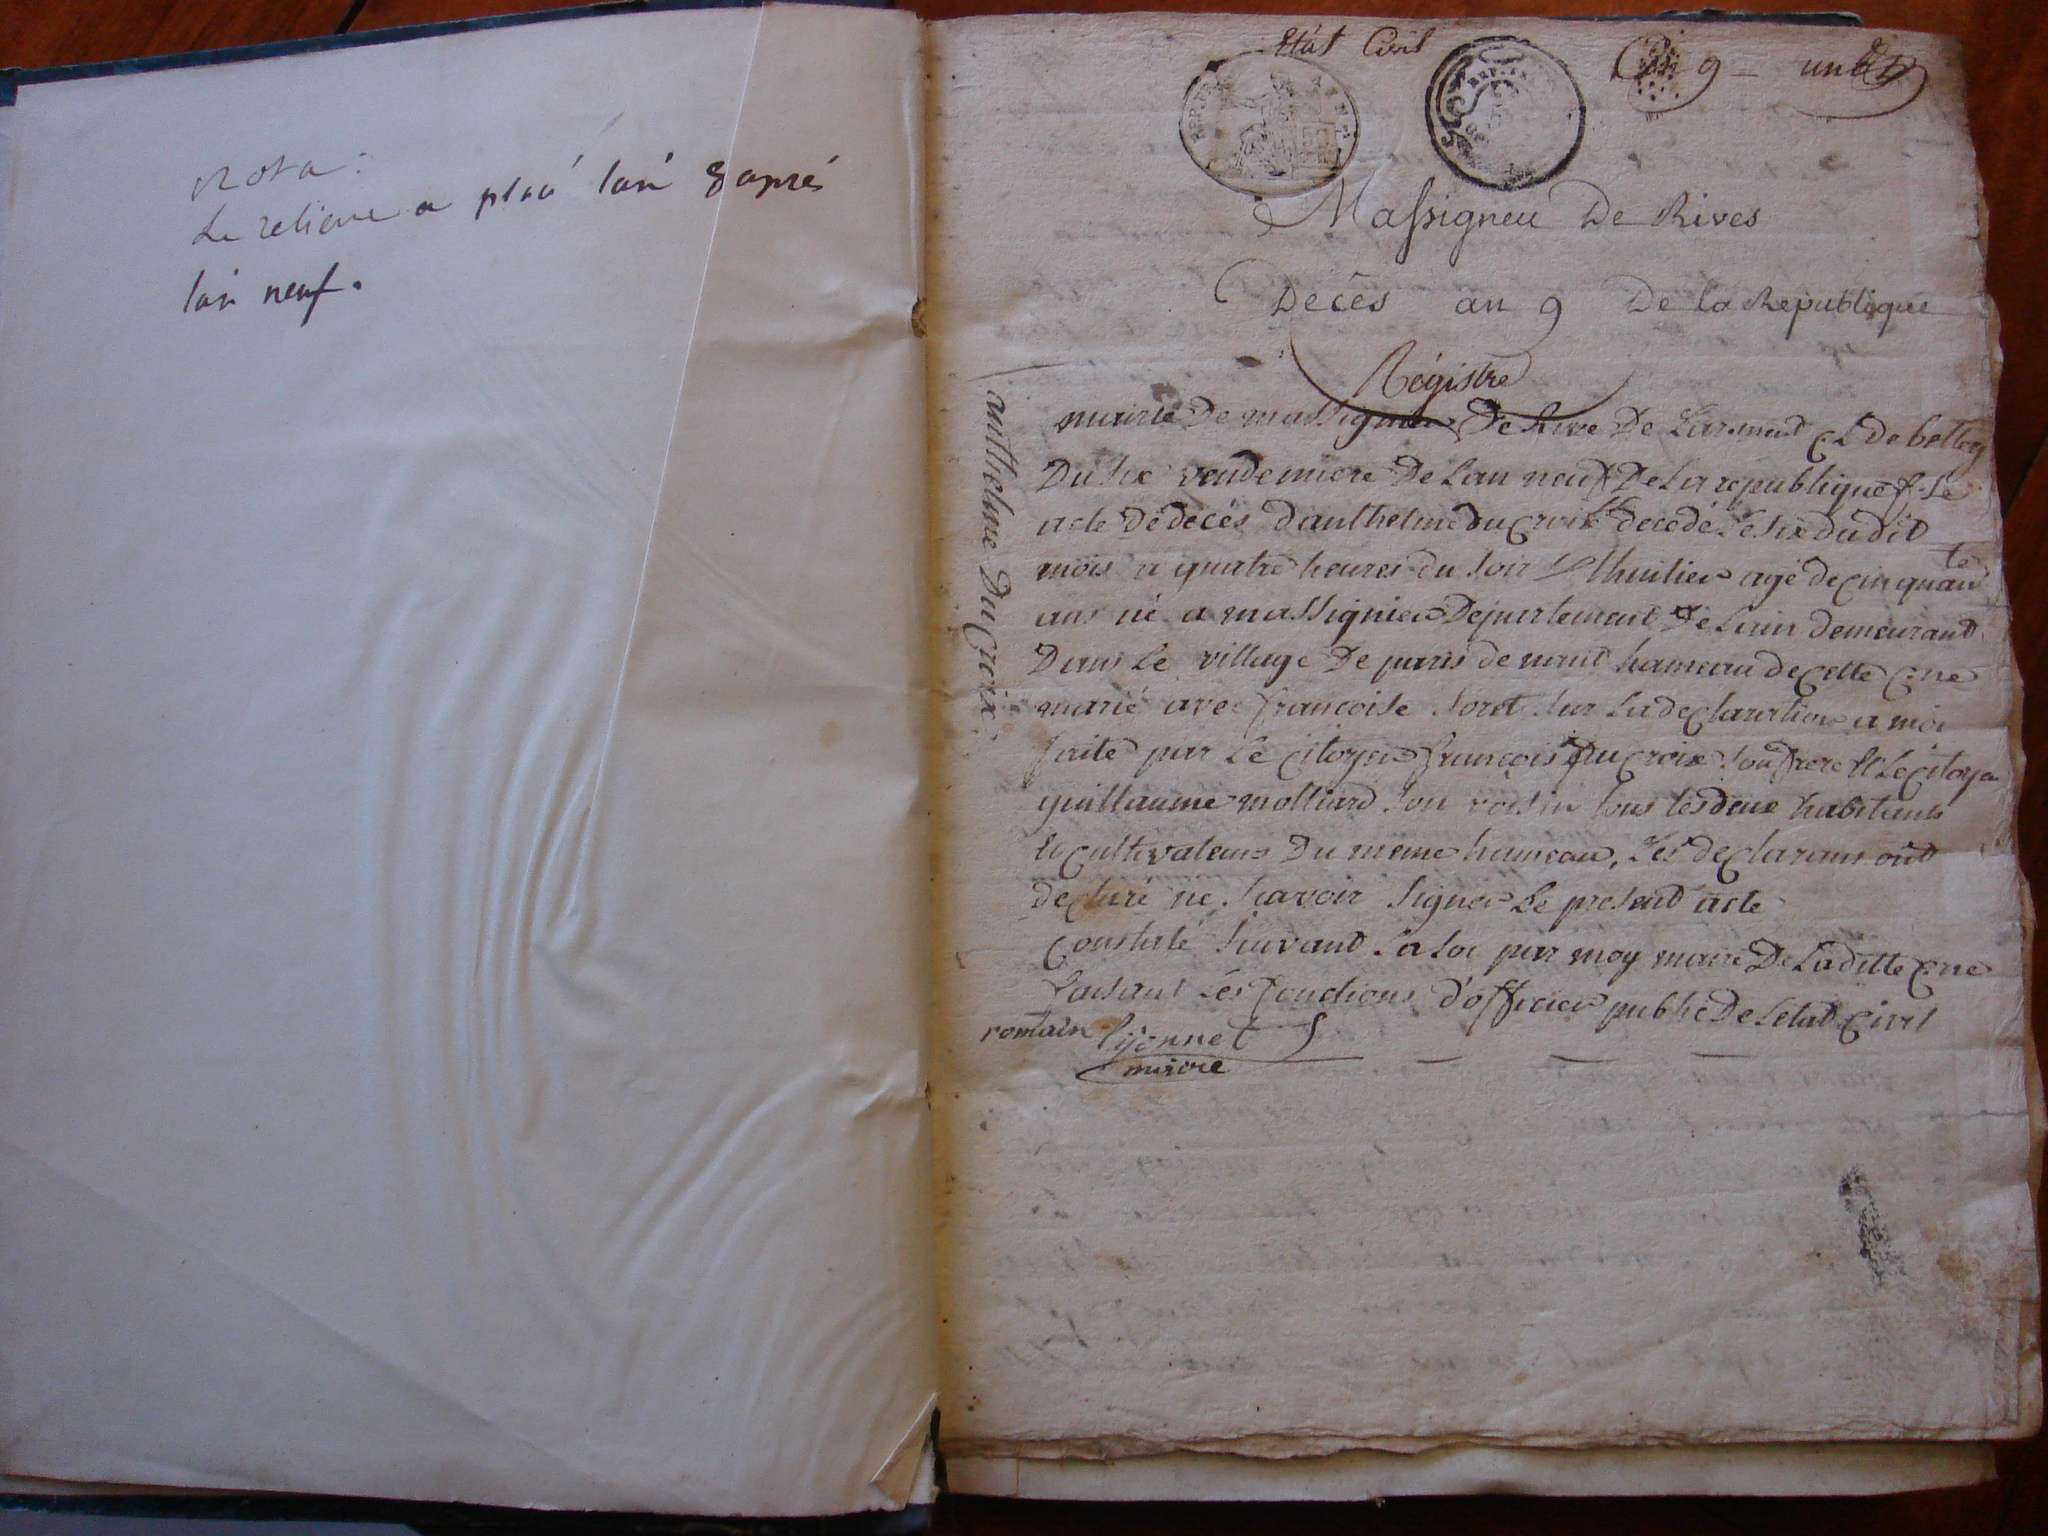 Nota:
Le relieur a placé l'an 8 après
l'an neuf.
Etat Civil
an 9 - un
REP. FRA
Massigneu De Rives
Décès an 9 De la Republique
Régistre
anthelme Du Croix
mairie De massignieu De Rive De Larment et de belley
Du six vendemiere De Lan neuf De La republique f.se
acte De decés Danthelme du Croix decedé Le six dudit
mois a quatre heures du soir agé de cinquante
ans né a massignieu Departement De Lain demeurant
Dans Le village De hameau de cette C.ne
marié avec francoise soret sur La declaration a moi
faite par Le Citoyen francois Du Croix son frere et Le citoyen
guillaume molliard son voisin tous les deux habitants
et cultivateurs Du meme hameau, Les declarans ont
declaré ne savoir signer Le present acte
Constaté suivant La loi par moy maire De Laditte C.ne
faisant Les fonctions d'officier public De Letat Civil
romain lyonnet
maire